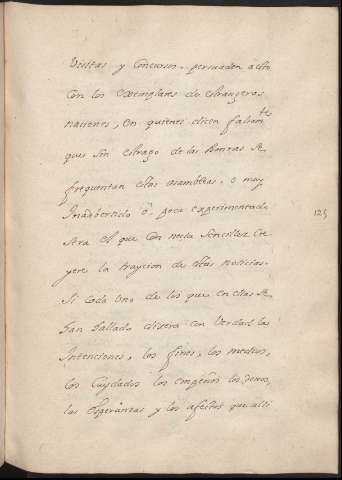 Visitas y Concursos. persuaden a esto
con los exemplares de estrangeras
naciones, en quienes dicen falsam.te
que sin estrago de las Honras se
frequentan estas asambleas. o muy
Inadbertido ô poco experimentado
sera el que con necia sencillez cre
yere la traycion de estas noticias.
Si cada uno de los que en ellas se
han hallado dixera con Verdad las
Intenciones, los fines, los medios,
los Cuydados los engaños los deseos,
las Esperanzas y los afectos que alli
125